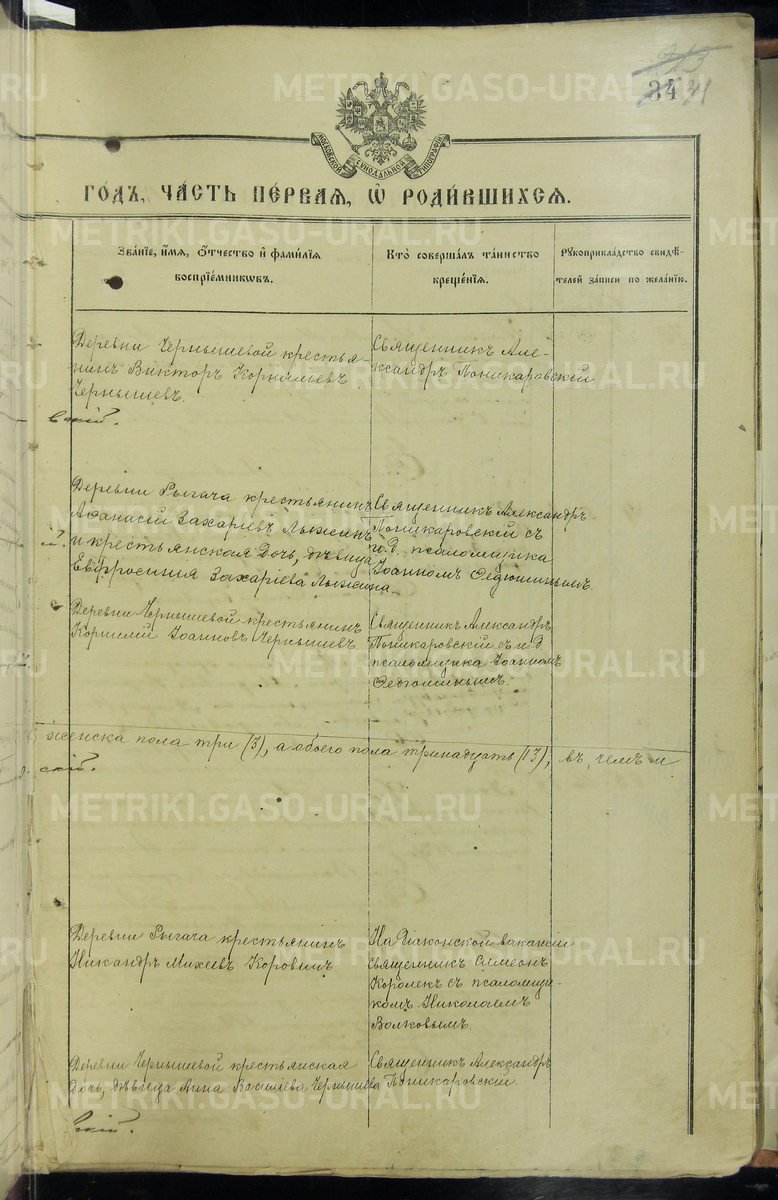 34 34
МОСКОВСКОЙ СѴНОДАЛЬНОЙ ТИПОГРАФІИ
ГОДЪ, ЧАСТЬ ПЕРВАЯ, Ѽ РОДИВШИХСЯ.
Званіе, имя, отчество и фамилія воспріемниковъ.
Кто совершалъ таинство крещенія.
Рукоприкладство свидѣтелей записи по желанію.
Деревни Чернышевой крестья-
нинъ Викторъ Корнильевъ
Чернышевъ.
Священникъ Але-
ксандръ Поникаровскій
вскій.
Деревни Рыгача крестьянинъ
Аѳанасій Захаріевъ Лыжинъ
и крестьянская дочь, дѣвица
Евфросинія Захаріева Лыжина.
Священникъ Александръ
Поникаровскій съ
и.д. псаломщика
Іоанномъ Ѳедюшинымъ.
й.
Деревни Чернышевой крестьянинъ
Корнилій Іоанновъ Чернышевъ
Священникъ Александръ
Поникаровскій съ и.д
псаломщика Іоанномъ
Ѳедюшинымъ.
женска пола три (3), а обоего пола тринадцать (13), въ чемъ и
скій.
Деревни Рыгача крестьянинъ
Никандръ Михеевъ Коровинъ.
На діаконской вакансіи
священникъ Симеонъ
Королекъ съ псаломщи-
комъ Николаемъ
Волковымъ.
Деревни Чернышевой крестьянская
дочь, дѣвица Анна Василіева Чернышева
Священникъ Александръ
Поникаровскій.
скій.
METRIKI.GASO-URAL.RU